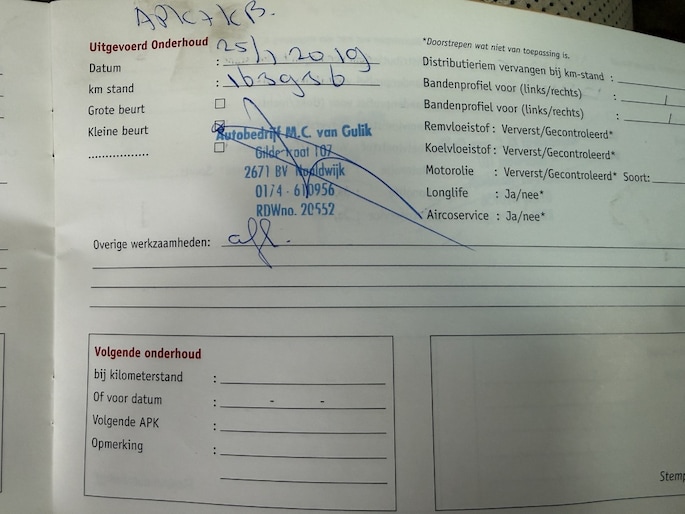 APK + KB.
Uitgevoerd Onderhoud
Datum : 25/1 2019
km stand : 163936
Grote beurt
Kleine beurt
..................
Autobedrijf M.C. van Gulik
Gildestraat 107
2671 BV Naaldwijk
01/4 - 610956
RDWno. 20552
Overige werkzaamheden:
*Doorstrepen wat niet van toepassing is.
Distributieriem vervangen bij km-stand :
Bandenprofiel voor (links/rechts) : /
Bandenprofiel voor (links/rechts) : /
Remvloeistof : Ververst/Gecontroleerd*
Koelvloeistof : Ververst/Gecontroleerd*
Motorolie : Ververst/Gecontroleerd* Soort:
Longlife : Ja/nee*
Aircoservice : Ja/nee*
Volgende onderhoud
bij kilometerstand :
Of voor datum : - -
Volgende APK :
Opmerking :